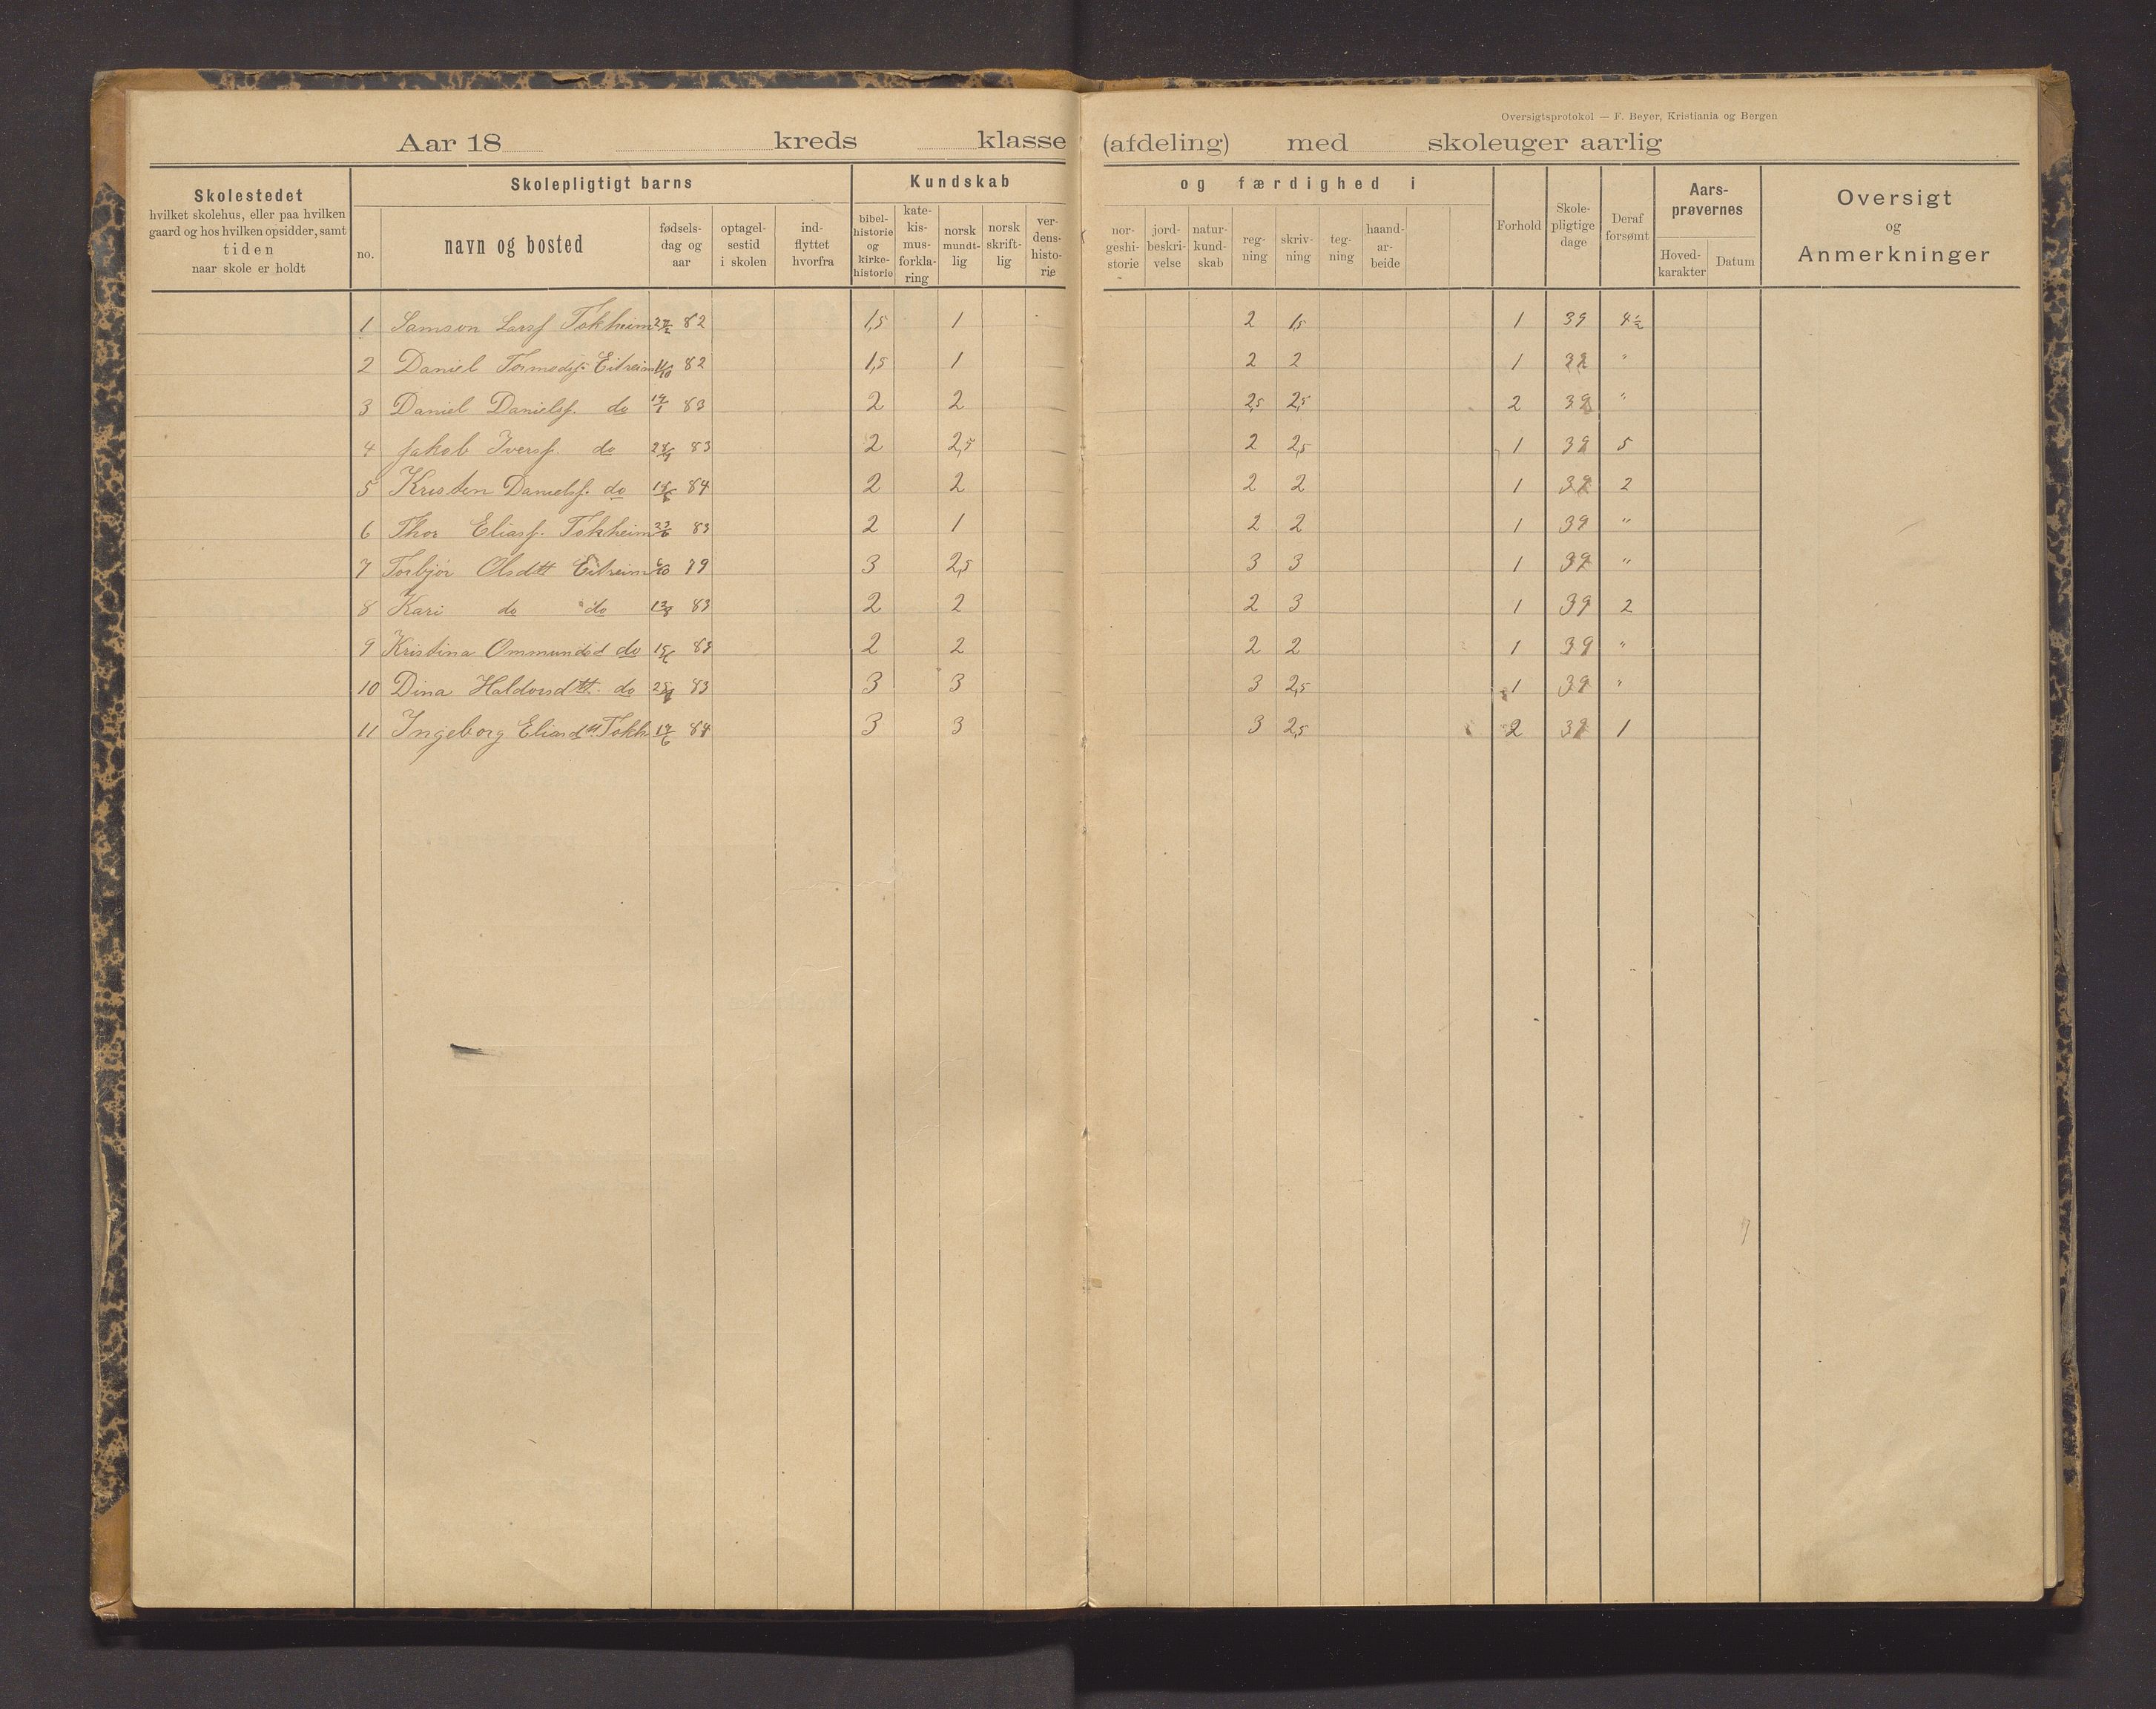 Oversigtsprotokol — F. Beyer, Kristiania og Bergen
Aar 18 kreds klasse (afdeling) med skoleuger aarlig
Skolestedet
hvilket skolehus, eller paa hvilken
gaard og hos hvilken opsidder, samt
tiden
naar skole er holdt
Skolepligtigt barns
no.
navn og bosted
fødsels-
dag og
aar
optagel-
sestid
i skolen
ind-
flyttet
hvorfra
Kundskab og færdighed i
bibel-
historie
og
kirke-
historie
kate-
kis-
mus-
forkla-
ring
norsk
mundt-
lig
norsk
skrift-
lig
ver-
dens-
histo-
rie
nor-
geshi-
storie
jord-
beskri-
velse
natur-
kund-
skab
reg-
ning
skriv-
ning
teg-
ning
haand-
ar-
beide
Forhold
Skole-
pligtige
dage
Deraf
forsømt
Aars-
prøvernes
Hoved-
karakter
Datum
Oversigt
og
Anmerkninger
1 Samson Larsf Tokheim 82 1,5 1 2 1,5 1 39 4½
2 Daniel Tormodsf. Eitreim 11/10 82 1,5 1 2 2 1 "
3 Daniel Danielsf. do 14/1 83 2 2 2,5 2,5 2 39 "
4 Jakob Iversf. do 83 2 2,5 2 2,5 1 39 5
5 Kristen Danielsf. do 84 2 2 2 2 1 39 2
6 Thor Eliasf. Tokheim 83 2 1 2 2 1 39 "
7 Torbjør Olsdtt Eitreim 79 3 2,5 3 3 1 39 "
8 Kari do do 83 2 2 2 3 1 39 2
9 Kristina Ommundsd do 83 2 2 2 2 1 39 "
10 Dina Haldorsdtt. do 83 3 3 3 2,5 1 39 "
11 Ingeborg Eliasdtt Tokh 14/6 84 3 3 3 2,5 2 39 1